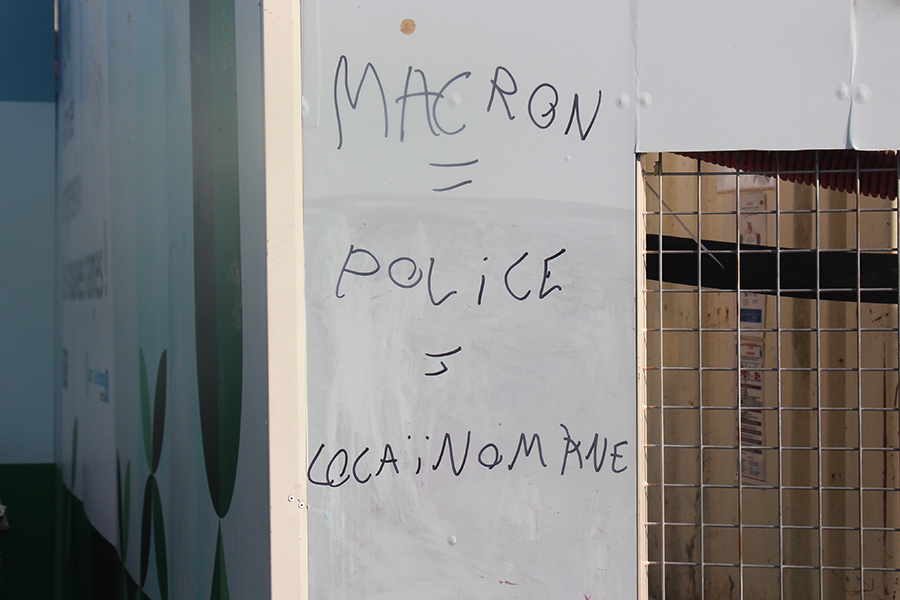 MACRON
=
POLiCE
=
COCAïNOMANE